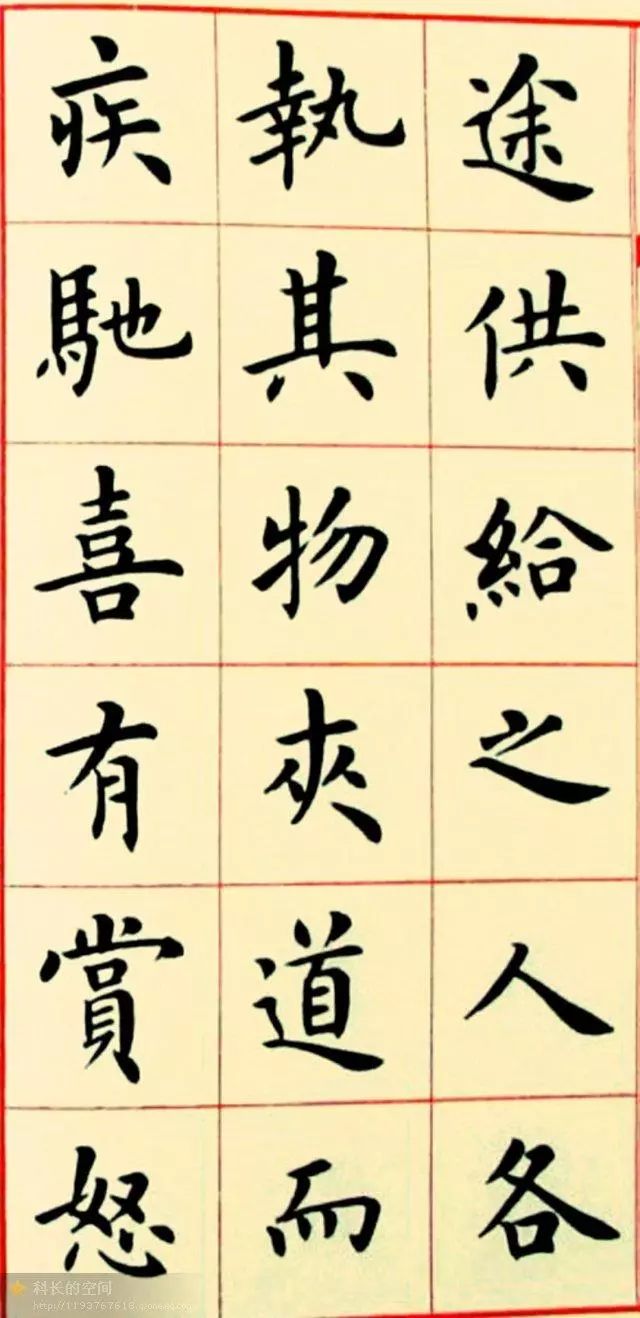 途供給之人各
執其物夾道而
疾馳喜有賞怒
科长的空间
http://1193767618.qzone.qq.com